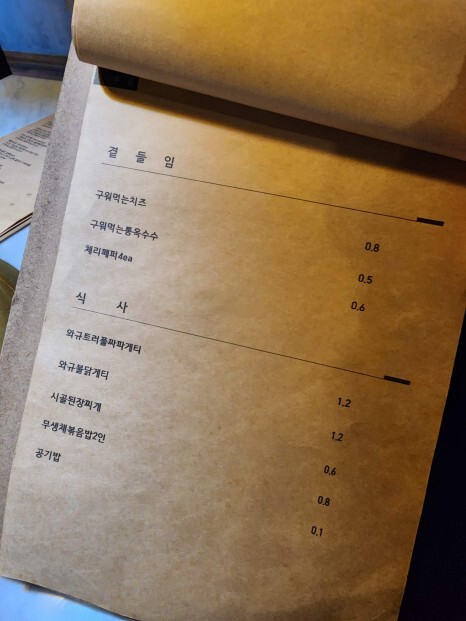 곁들임
구워먹는치즈 0.8
구워먹는통옥수수 0.5
체리페퍼4ea 0.6
식 사
와규트러플짜파게티 1.2
와규불닭게티 1.2
시골된장찌개 0.6
무생채볶음밥2인 0.8
공기밥 0.1